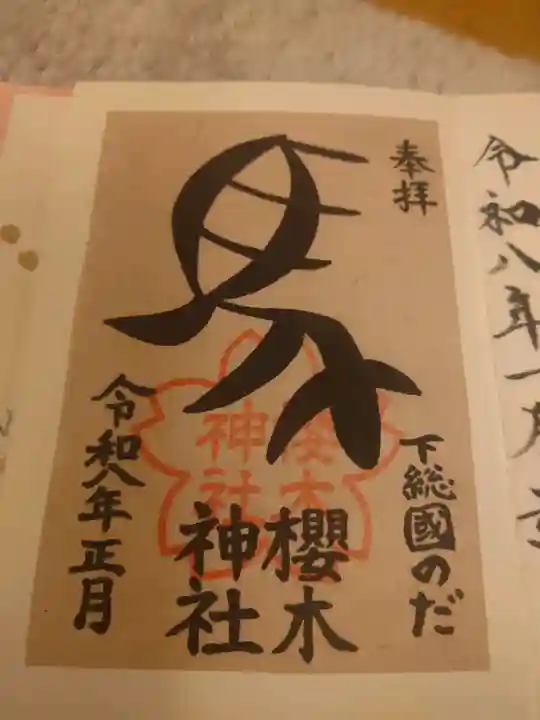 奉拝
馬
下総國のだ
櫻木
神社
櫻木
神社
令和八年正月
令和八年一月